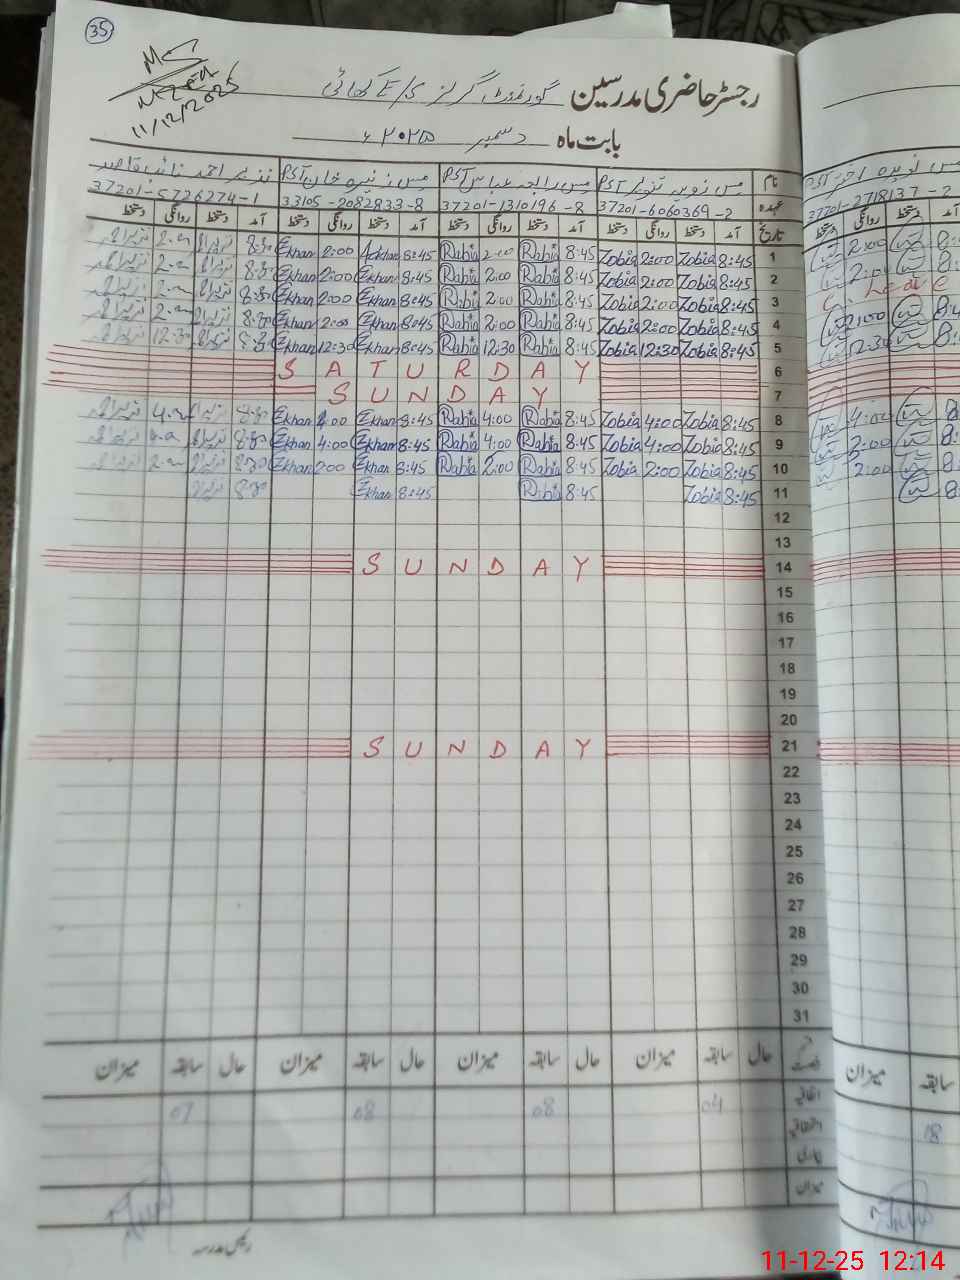 35
11/12/2025
رجسٹر حاضری مدرسین گورنمنٹ گرلز E/S
بابت ماہ دسمبر ۲۰۲۵ء
نام مس زوبیہ تنویر PST مس رابعہ عباس PST خان PST نذیر احمد نائب قاصد
عہدہ 37201-6060369-2 37201-1310196-8 33105-2082833-8 37201-5726274-1 37201-2718137-2
تاریخ آمد دستخط روانگی دستخط آمد دستخط روانگی دستخط آمد دستخط روانگی دستخط آمد دستخط روانگی دستخط
1 8:45 Zobia 2:00 Zobia 8:45 Rabia 2:00 Rabia 8:45 2:00 Ekhan 8:30 2:00
2 8:45 Zobia 2:00 Zobia 8:45 Rabia 2:00 Rabia 8:45 Ekhan 2:00 Ekhan 8:30 2:00
3 8:45 Zobia 2:00 Zobia 8:45 Rabia 2:00 Rabia 8:45 Ekhan 2:00 Ekhan 8:30 2:00 Leave
4 8:45 Zobia 2:00 Zobia 8:45 Rabia 2:00 Rabia 8:45 Ekhan 2:00 Ekhan 8:30 2:00
5 8:45 Zobia 12:30 Zobia 8:45 Rabia 12:30 Rabia 8:45 Ekhan 12:30 Ekhan 8:30 12:30
6 SATURDAY
7 SUNDAY
8 8:45 Zobia 4:00 Zobia 8:45 Rabia 4:00 Rabia 8:45 Ekhan 4:00 Ekhan 8:30 4:00
9 8:45 Zobia 4:00 Zobia 8:45 Rabia 4:00 Rabia 8:45 Ekhan 4:00 Ekhan 8:30 4:00
10 8:45 Zobia 2:00 Zobia 8:45 Rabia 2:00 Rabia 8:45 Ekhan 2:00 Ekhan 8:30 2:00
11 8:45 Zobia 8:45 Rabia 8:45 Ekhan 8:30
12
13
14 SUNDAY
15
16
17
18
19
20
21 SUNDAY
22
23
24
25
26
27
28
29
30
31
حال سابقہ میزان حال سابقہ میزان حال سابقہ میزان حال سابقہ میزان
اتفاقیہ 04 08 08 07
18
میزان
رئیس مدرسہ
11-12-25 12:14